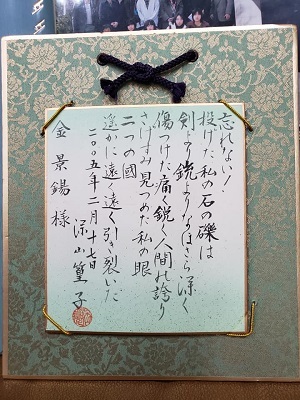 忘れない!
投げた私の石の礫は
剣より鋭よりなほさら深く
傷つけた痛く鋭く人間の誇り
さげすみ見つめた私の眼
二つの國
遥かに遠く遠く引き裂いた
二〇〇五年二月十七日
深山篁子
金景錫様